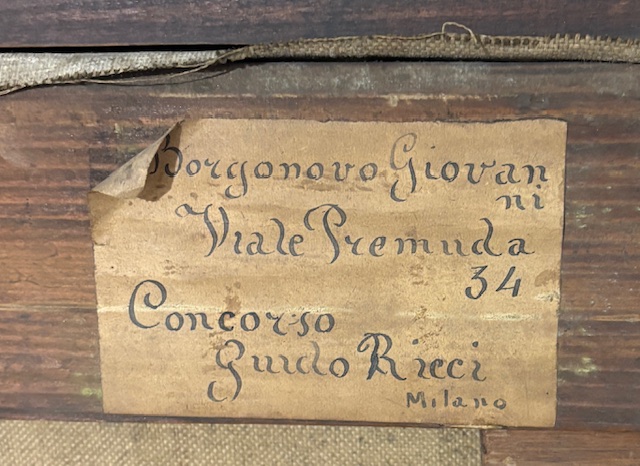 Borgonovo Giovan
ni
Viale Premuda
34
Concorso
Guido Ricci
Milano